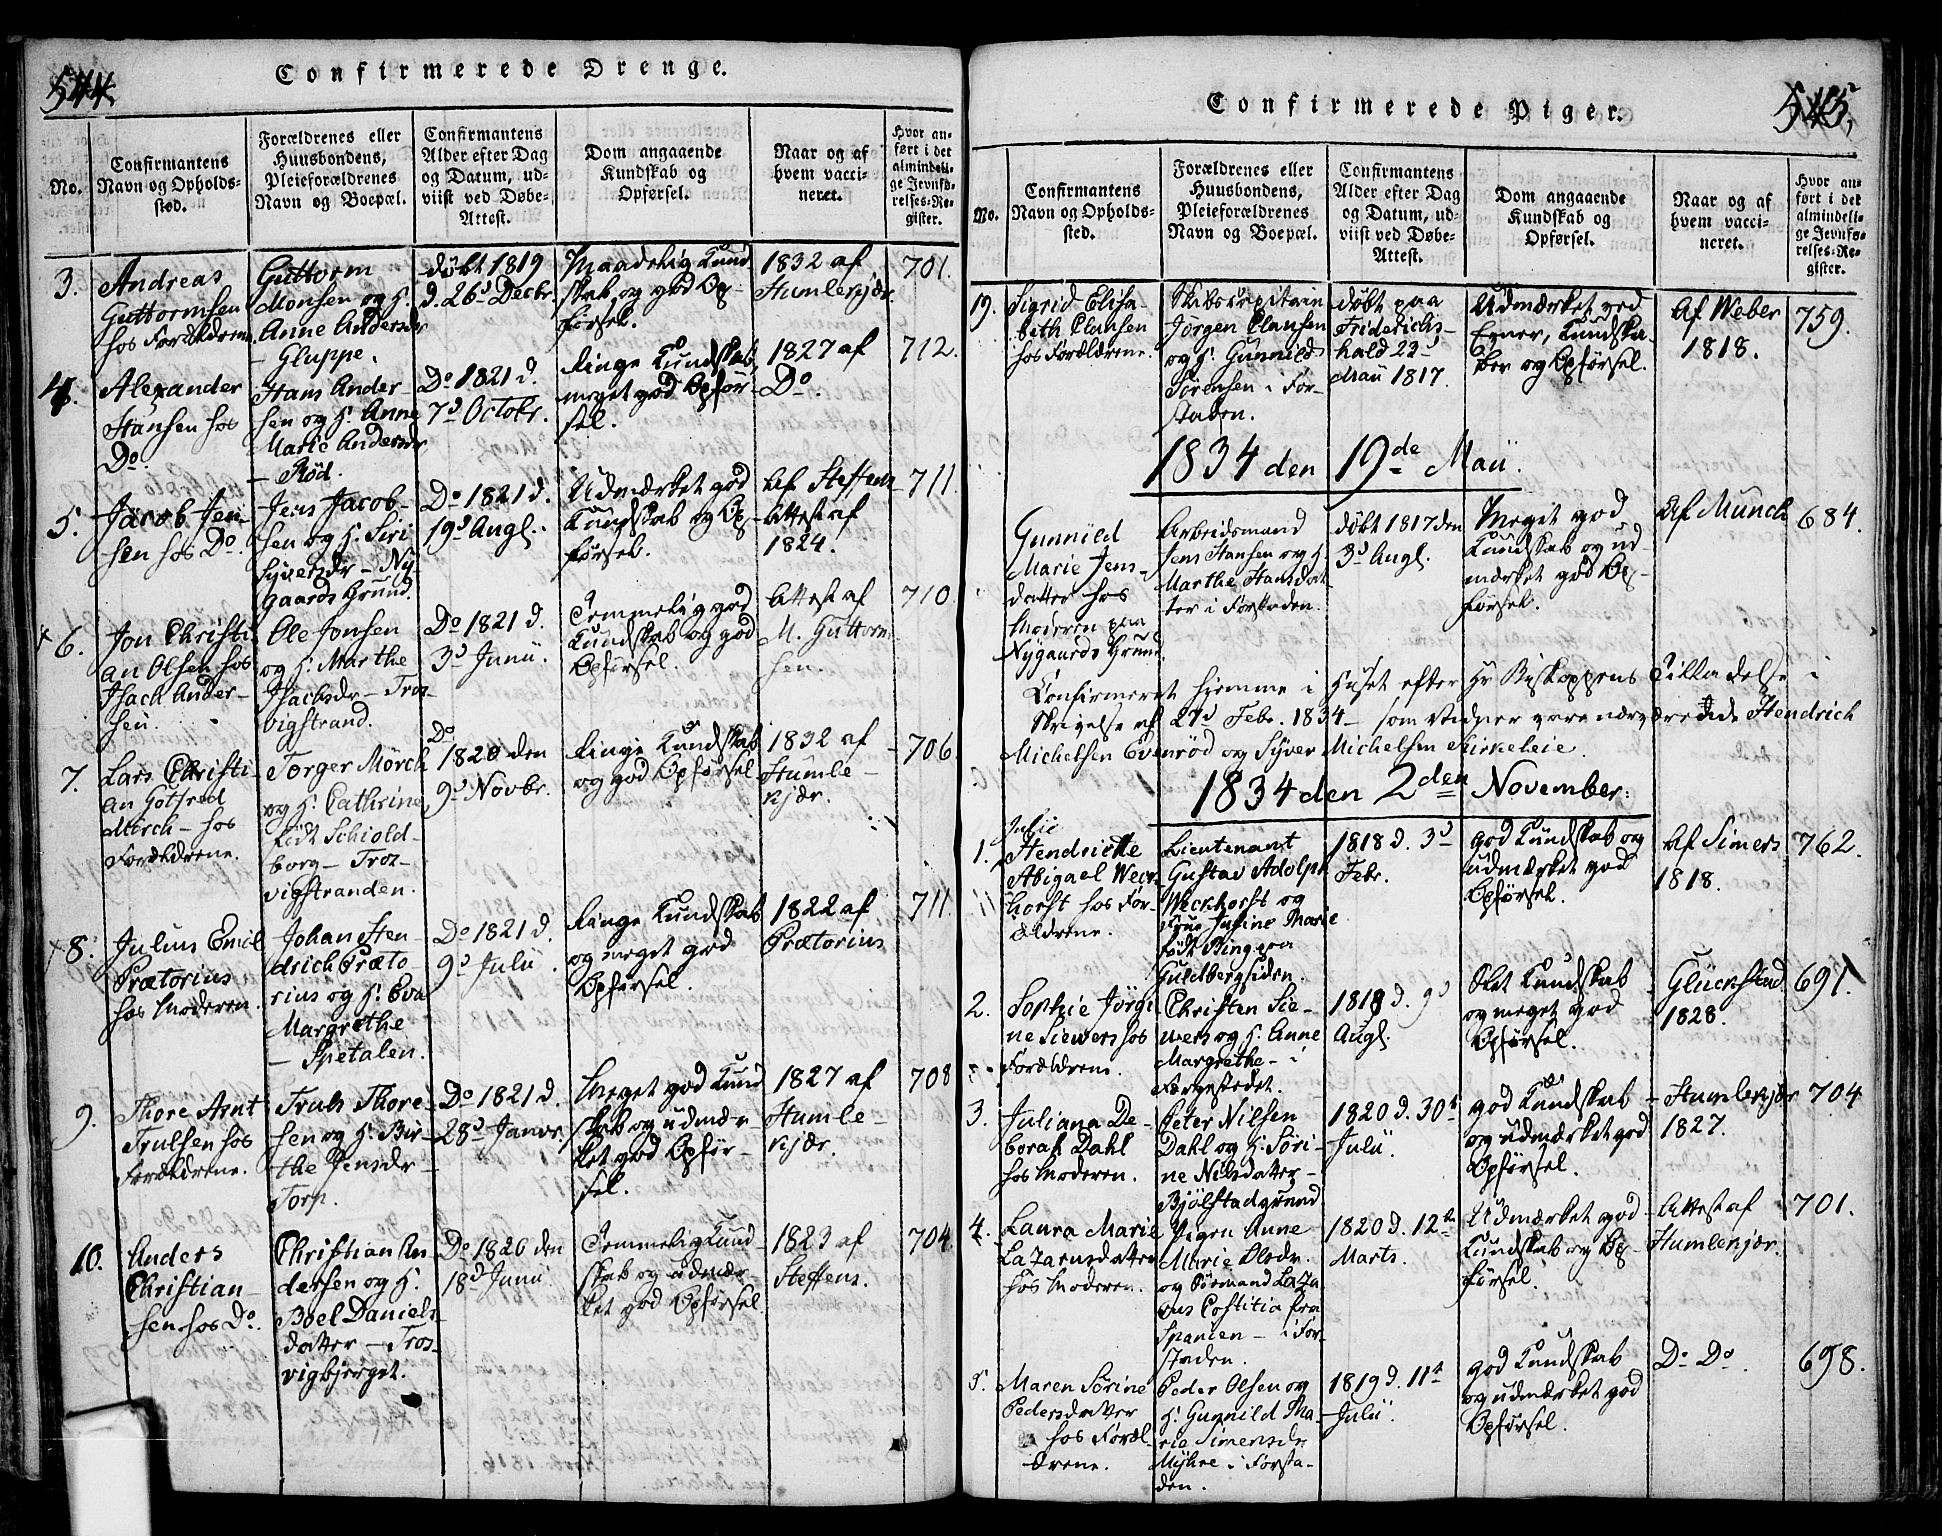 544.
Confirmerede Drenge.
No.
Confirmantens
Navn og Opholds-
sted.
Forældrenes eller
Huusbondens,
Pleieforældrenes
Navn og Boepæl.
Confirmantens
Alder efter Dag
og Datum, ud-
viist ved Døbe-
Attest.
Dom angaaende
Kundskab og
Opførsel.
Naar og af
hvem vacci-
neret.
Hvor an-
ført i det
almindeli-
ge Jevnfø-
relses-Re-
gister.
3.
Andreas
Guttormsen
hos Forældrene
Guttorm
Monsen og H.
Anne Andersdr
- Gluppe.
døbt 1819
d. 26d Decbr.
Maadelig Kund
skab og god Op-
førsel.
1832 af
Humlekjær
701.
4.
Alexander
Hansen hos
Do.
Hans Ander-
sen og H. Anne
Marie Andersdr
- Röd.
Do 1821 d.
7d Octobr.
Ringe Kundskab,
meget god Opfør-
sel.
1827 af
Do.
712.
5.
Jacob Jen-
sen hos Do.
Jens Jacob-
sen og H. Siri
Syversdr - Ny
gaards Grund.
Do 1821 d.
19d Augl.
Udmærket god
Kundskab og Op-
førsel.
Af Steffens
Attest af
1824.
711.
6.
Jon Christi-
an Olsen hos
Isach Ander-
sen.
Ole Jonsen
og H. Marthe
Isachsdr - Tros-
vigstrand.
Do 1821 d.
3d Junii.
Temmelig god
Kundskab og god
Opførsel.
Attest af
M. Guttorm-
sen.
710.
7.
Lars Christi-
an Gotfred
Mörch - hos
Forældrene.
Torger Mörch
og H. Cathrine
født Schiold-
borg - Tros-
vigstranden.
Do
1820 den
9d Novbr.
Ringe Kundskab
og god Opførsel
1832 af
Humle-
kjær.
706.
8.
Julius Emil
Prætorius
hos Moderen.
Johan Hen-
drich Præto
rius og H. Eva
Margrethe
- Spetalen.
Do 1821 d.
9d Julii.
Ringe Kundskab
og meget god
Opførsel.
1822 af
Prætorius
711.
9.
Thore Arnt
Trulsen hos
Forældrene.
Truls Thore-
sen og H. Bir-
the Jensdr -
Torp.
Do 1821 d.
28d Janvr.
Meget god Kund
skab og udmær-
ket god Opfør-
sel.
1827 af
Humle-
kjær.
708
10.
Anders
Christian-
sen hos Do.
Christian An
dersen og H.
Boel Daniels-
datter - Tros-
vigbjerget.
Do 1820 den
18d Junii.
Temmelig Kund-
skab og udmær-
ket god Opførsel
1823 af
Steffens.
704.
545.
Confirmerede Piger.
No.
Confirmantens
Navn og Opholds-
sted.
Forældrenes eller
Huusbondens,
Pleieforældrenes
Navn og Boepæl.
Confirmantens
Alder efter Dag
og Datum, ud-
viist ved Døbe-
Attest.
Dom angaaende
Kundskab og
Opførsel.
Naar og af
hvem vacci-
neret.
Hvor an-
ført i det
almindeli-
ge Jevnfø-
relses-Re-
gister.
19.
Sigrid Elisa-
beth Clausen
hos Forældrene.
Skibscapitain
Jörgen Clausen
og H. Gunnild
Sörensen i For-
staden.
døbt paa
Friderichs-
hald 22d
Maii 1817.
Udmærket god
Evner, Kundska-
ber og Opførsel.
Af Weber
1818.
759.
1834 den 19de Maii.
Gunnild
Marie Jens-
datter hos
Moderen paa
Nygaards Grund.
Arbeidsmand
Jens Hansen og H.
Marthe Hansdat-
ter i Forstaden.
døbt 1817 den
3d Augl.
Meget god
Kundskab og ud-
mærket god Op-
førsel.
Af Münch
684.
Confirmeret hjemme i Huset efter Hr Biskoppens Tilladelse i
Skrivelse af 27d Febr. 1834 - som Vidner vare nærværende Hendrich
Michelsen Evenröd og Syver Michelsen Kirkeleie.
1834 den 2den November.
1.
Julie
Hendriette
Abigael Weck-
horst hos For-
ældrene.
Lieutenant
Gustav Adolph
Weckhorst og
Frue Justine Marie
født Bing paa
Guldbergsiden.
1818 d. 3d
Febr.
god Kundskab og
udmærket god
Opførsel.
Af Simers
1818.
762.
2.
Sophie Jörgi-
ne Siewers hos
Forældrene.
Christen Sie-
wers og H. Anne
Margrethe - i
Færgestedet.
1818 d. 9d
Augl.
Slet Kundskab
og meget god
Opførsel.
Glückstad
1828.
691.
3.
Juliana De-
borah Dahl
hos Moderen.
Peter Nilsen
Dahl og H. Söri-
ne Nilsdatter -
Bjölstadgrund
1820 d. 30t
Julii.
god Kundskab
og udmærket god
Opførsel.
Humlekjær
1827.
704
4.
Laura Marie
Lazarusdatter
hos Moderen.
Pigen Anne
Marie Olsdr.
og Sørmand Laza
rus Costitia fra
Spanien - i For-
staden.
1820 d. 12te
Marts.
Udmærket god
Kundskab og Op-
førsel.
Attest af
Humlekjær.
701.
5.
Maren Sörine
Pedersdatter
hos Foræl-
drene.
Peder Olsen og
H. Gunnild Ma-
rie Simensdr
Myhre i Forsta-
den.
1819 d. 11t
Julii.
god Kundskab
og udmærket god
Opførsel.
Do Do.
698.